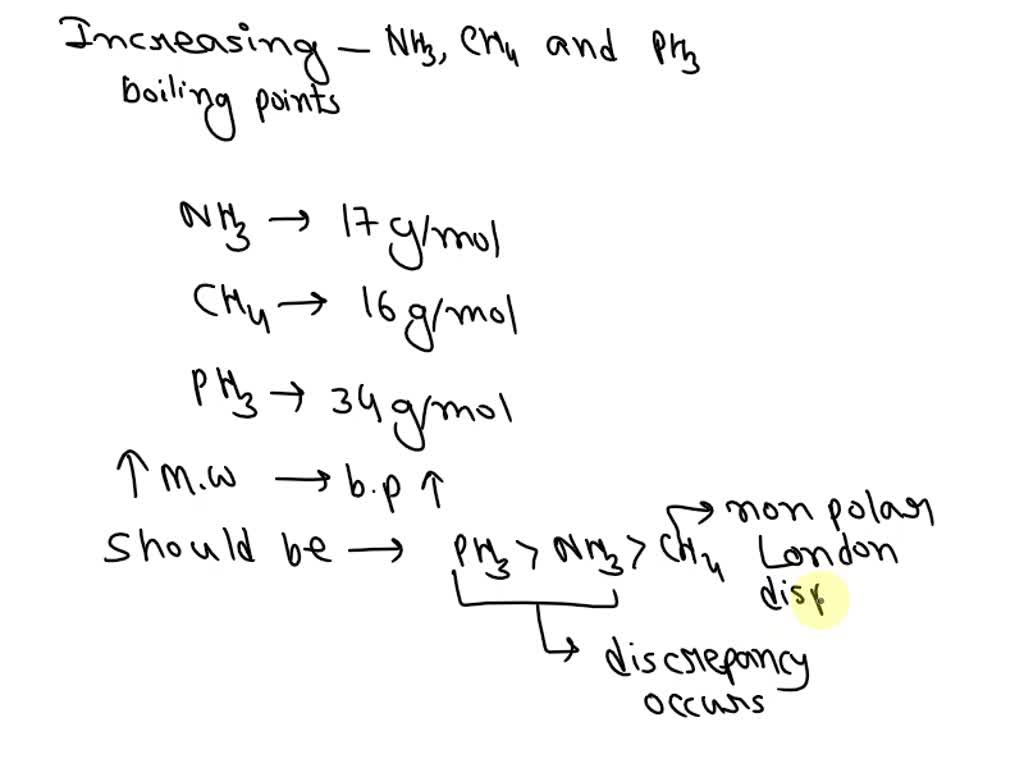 Increasing – NH3, CH4 and PH3
boiling points
NH3 → 17 g/mol
CH4 → 16 g/mol
PH3 → 34 g/mol
↑ m.w → b.p ↑
should be → PH3 > NH3 > CH4 → non polar
London
disp
→ discrepancy
occurs